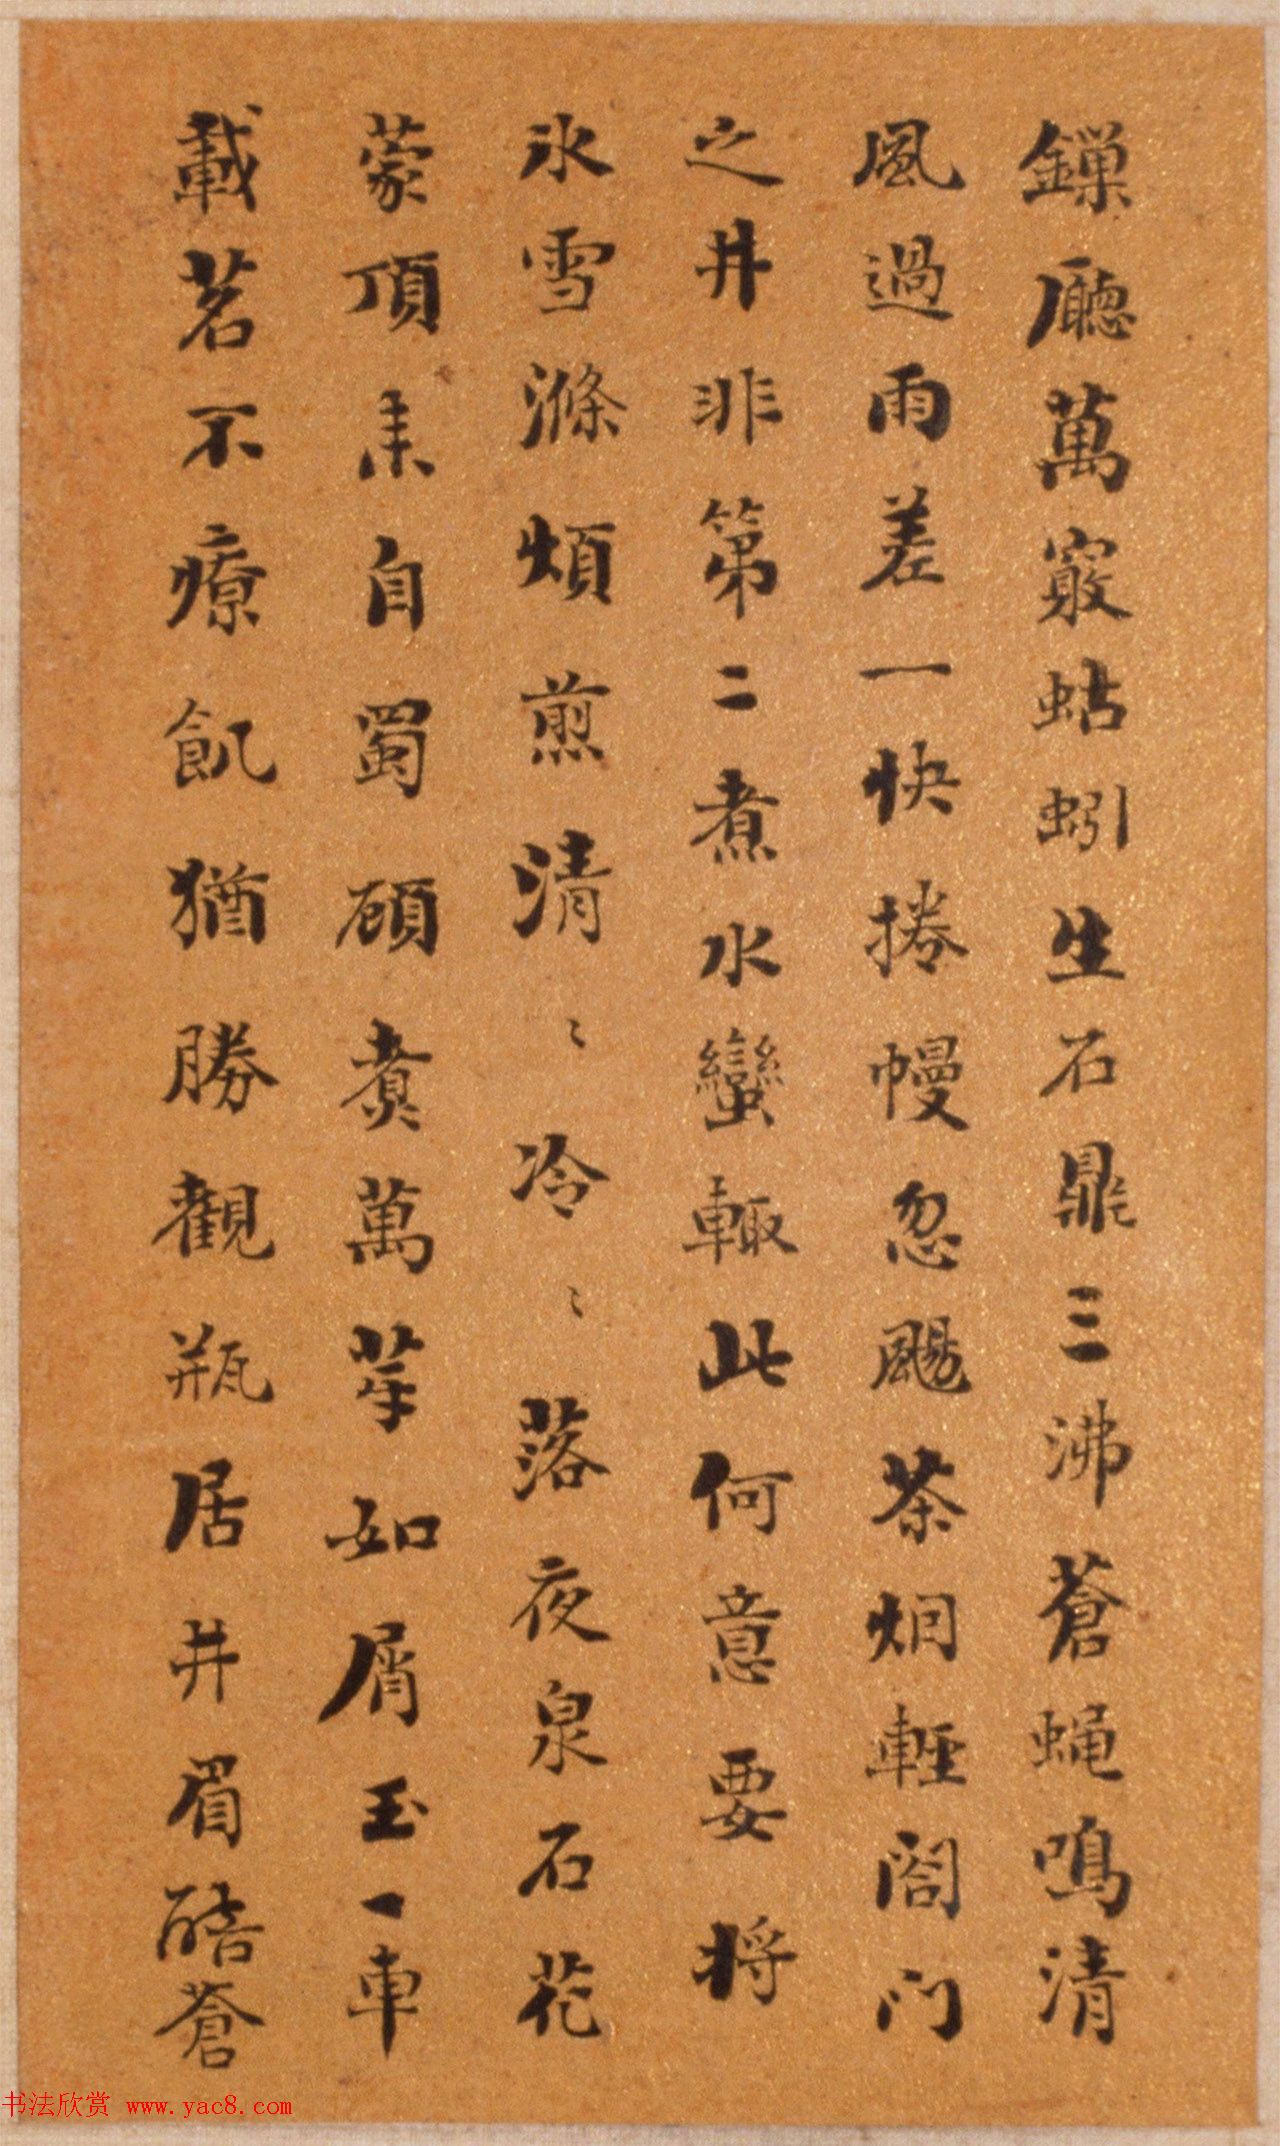 鏁廳萬竅蛄蚓生石鼎三沸蒼蝇鳴清
風過雨差一快捲幔忽颺茶烟輕閤门
之井非第二煮水蠻輙此何意要将
氷雪滌煩煎清〻冷〻落夜泉石花
蒙頂来自蜀碩煑萬芽如屑玉一車
載茗不療飢猶勝觀瓶居井眉皓蒼
书法欣赏 www.yac8.com